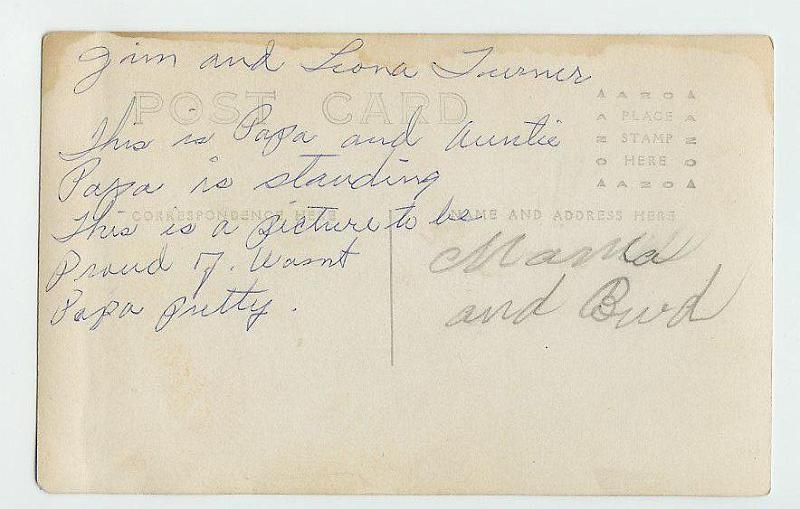 Jim and Leona Turner
POST CARD
AZO
PLACE
STAMP
HERE
AZO
This is Papa and Auntie
Papa is standing
CORRESPONDENCE HERE
NAME AND ADDRESS HERE
This is a picture to be
Proud of. Wasnt
Papa pretty.
Mama
and